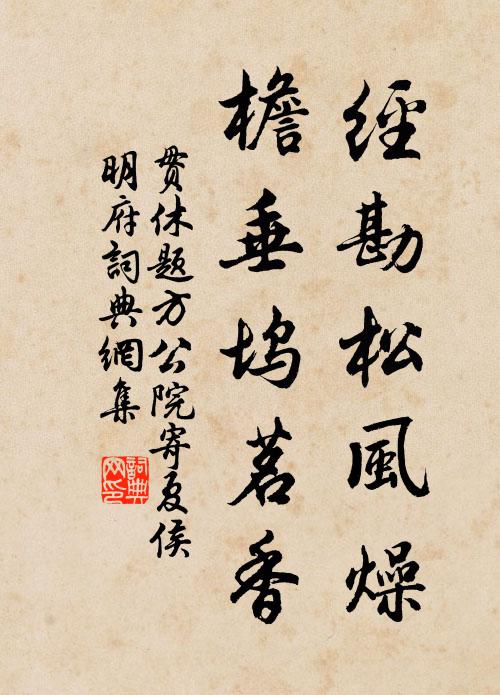 經勘松風燥
檐垂塢茗香
貫休題方公院寄夏侯
明府詞典網集
詞典
网印